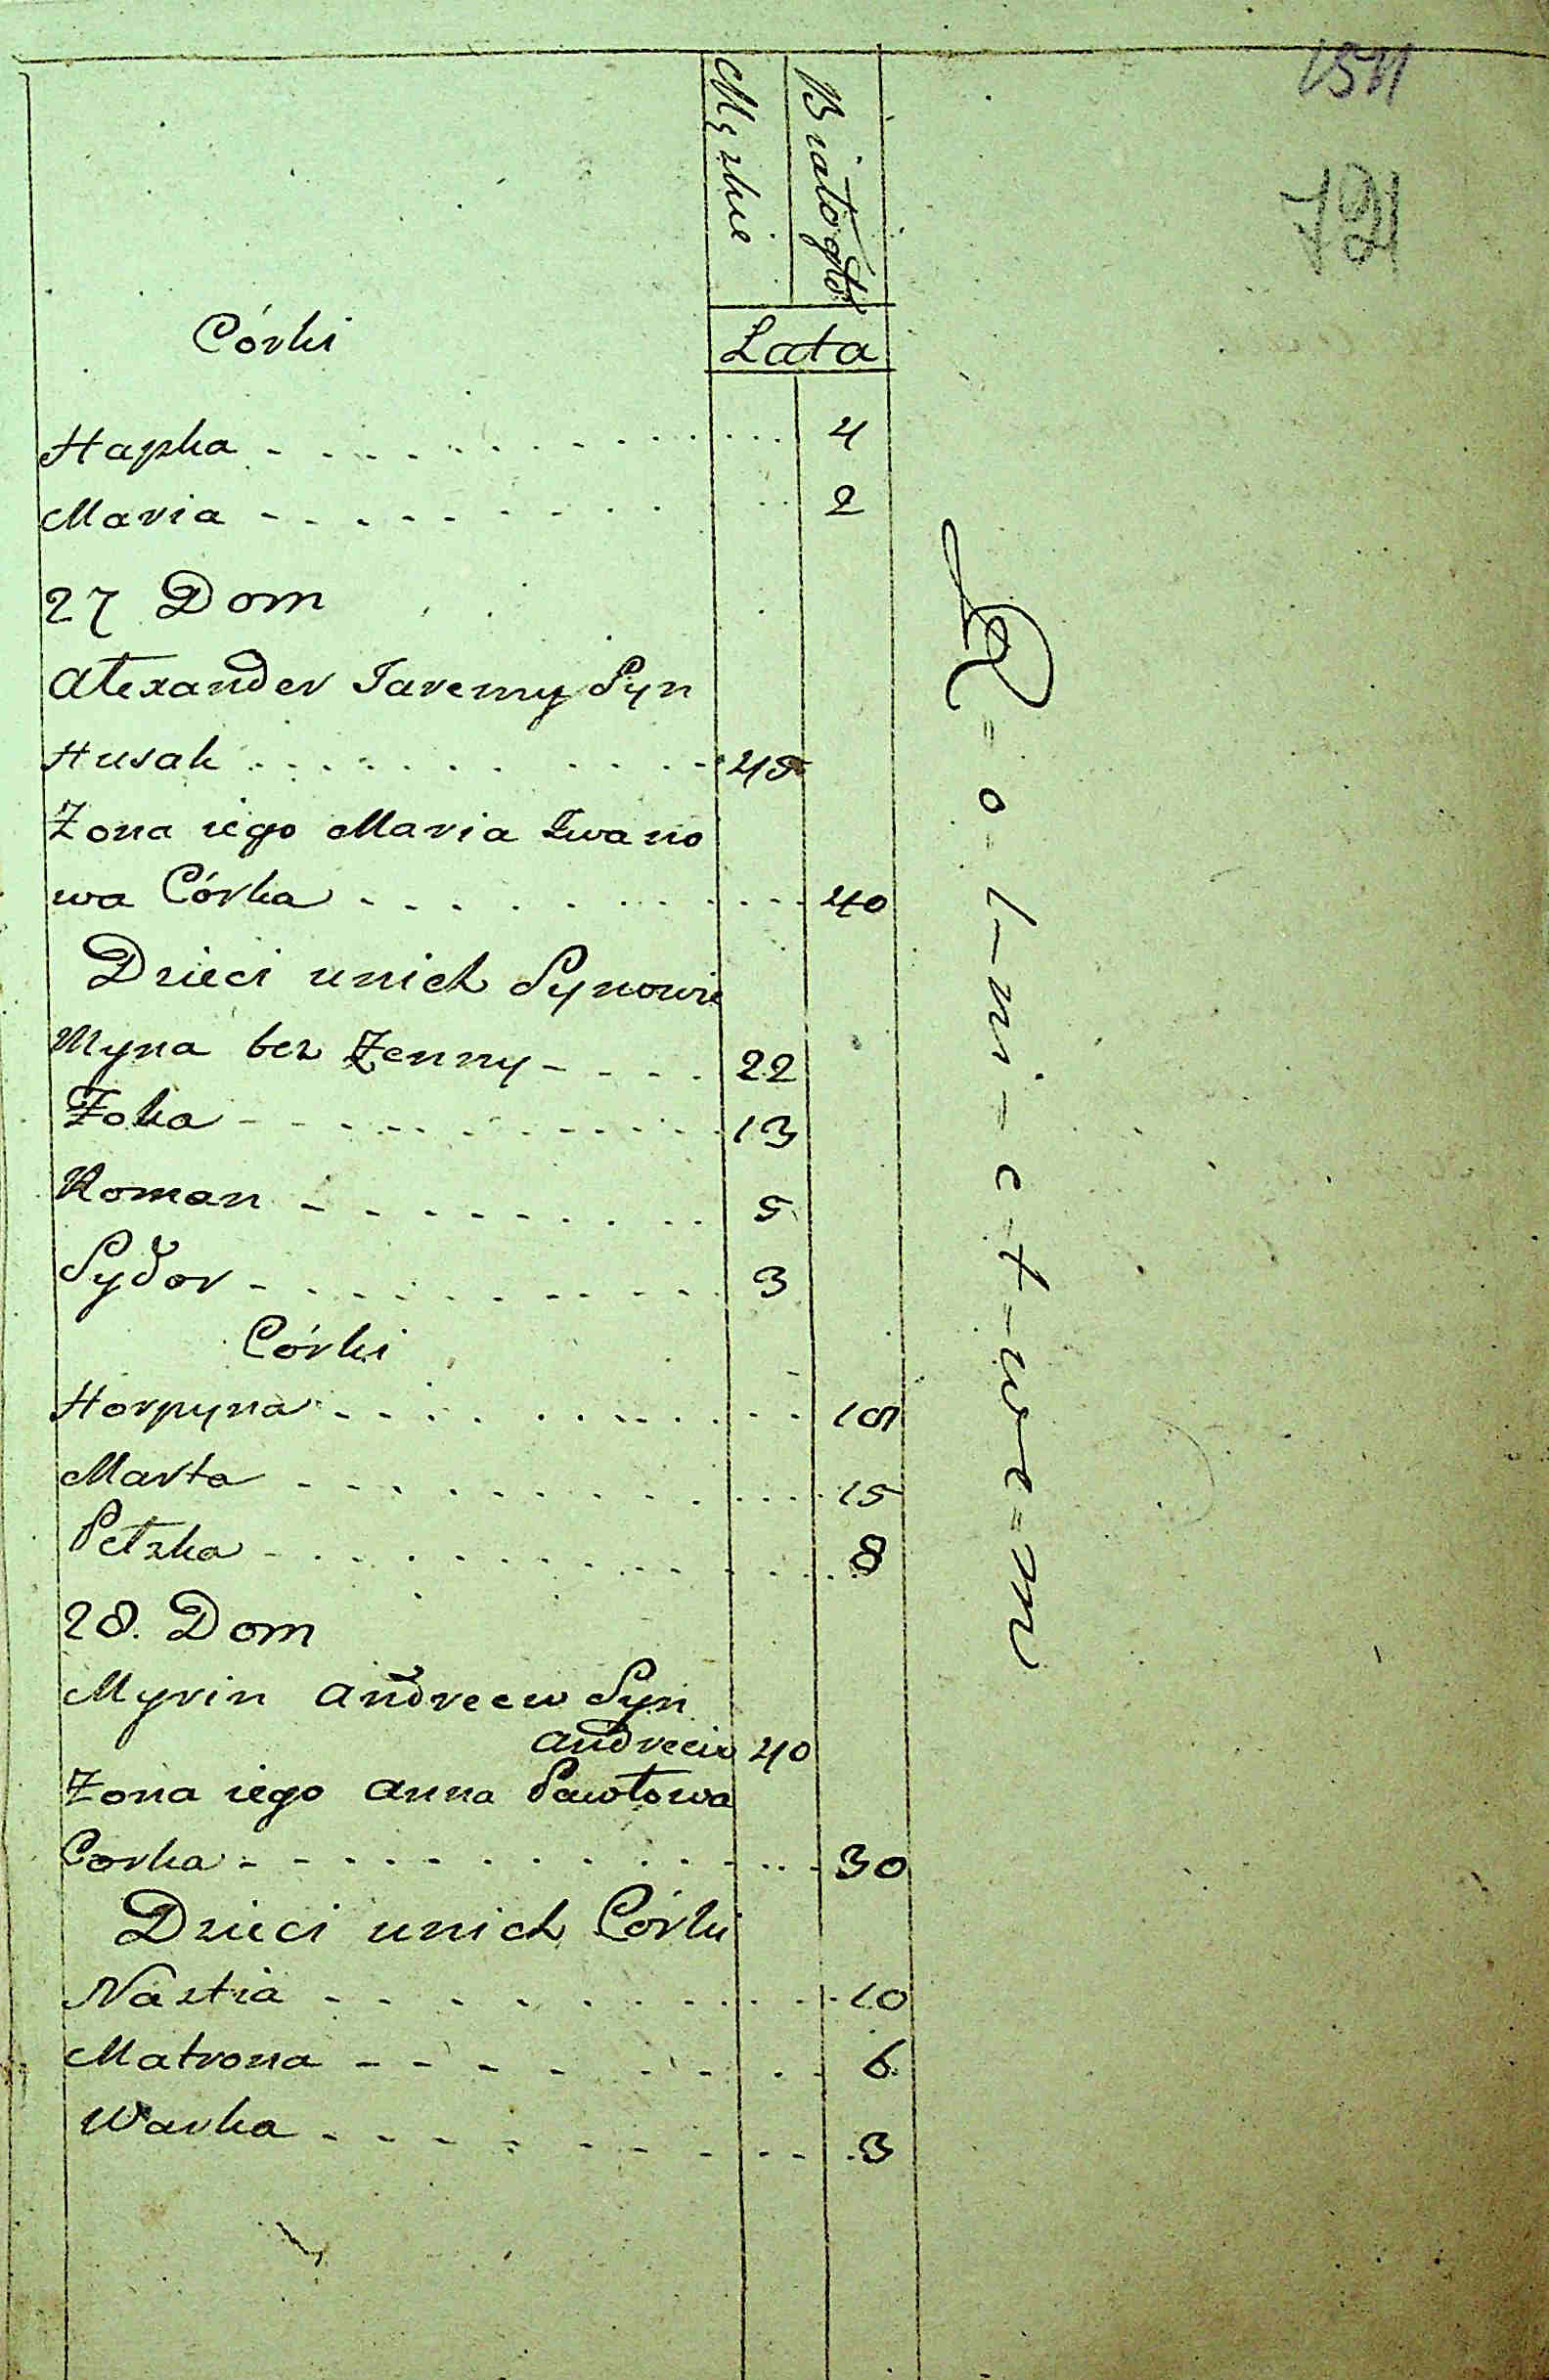 Męzkie Białogło:
Córki
Lata
Hapka - - - - - - - - - - 4
Maria - - - - - - - - - - 2
27 Dom
Alexander Jaremy Syn
Husak - - - - - - - - - - 45
Żona iego Maria Iwano
wa Córka - - - - - - - - - - 40
Dzieci unich Synowie
Myna bez Żenny - - - - 22
Foka - - - - - - - - - - 13
Roman - - - - - - - - - - 5
Sydor - - - - - - - - - - 3
Córki
Horpyna - - - - - - - - - -
Marta - - - - - - - - - - 15
Petzka - - - - - - - - - - 8
28. Dom
Myrin Andreew Syn
Andreciw 40
Żona iego Anna Pawłowa
Corka - - - - - - - - - - 30
Dzieci unich Córki
Nastia - - - - - - - - - - 10
Matrona - - - - - - - - - - 6
Warka - - - - - - - - - - 3
R=o-l-ni-c-t-we=m